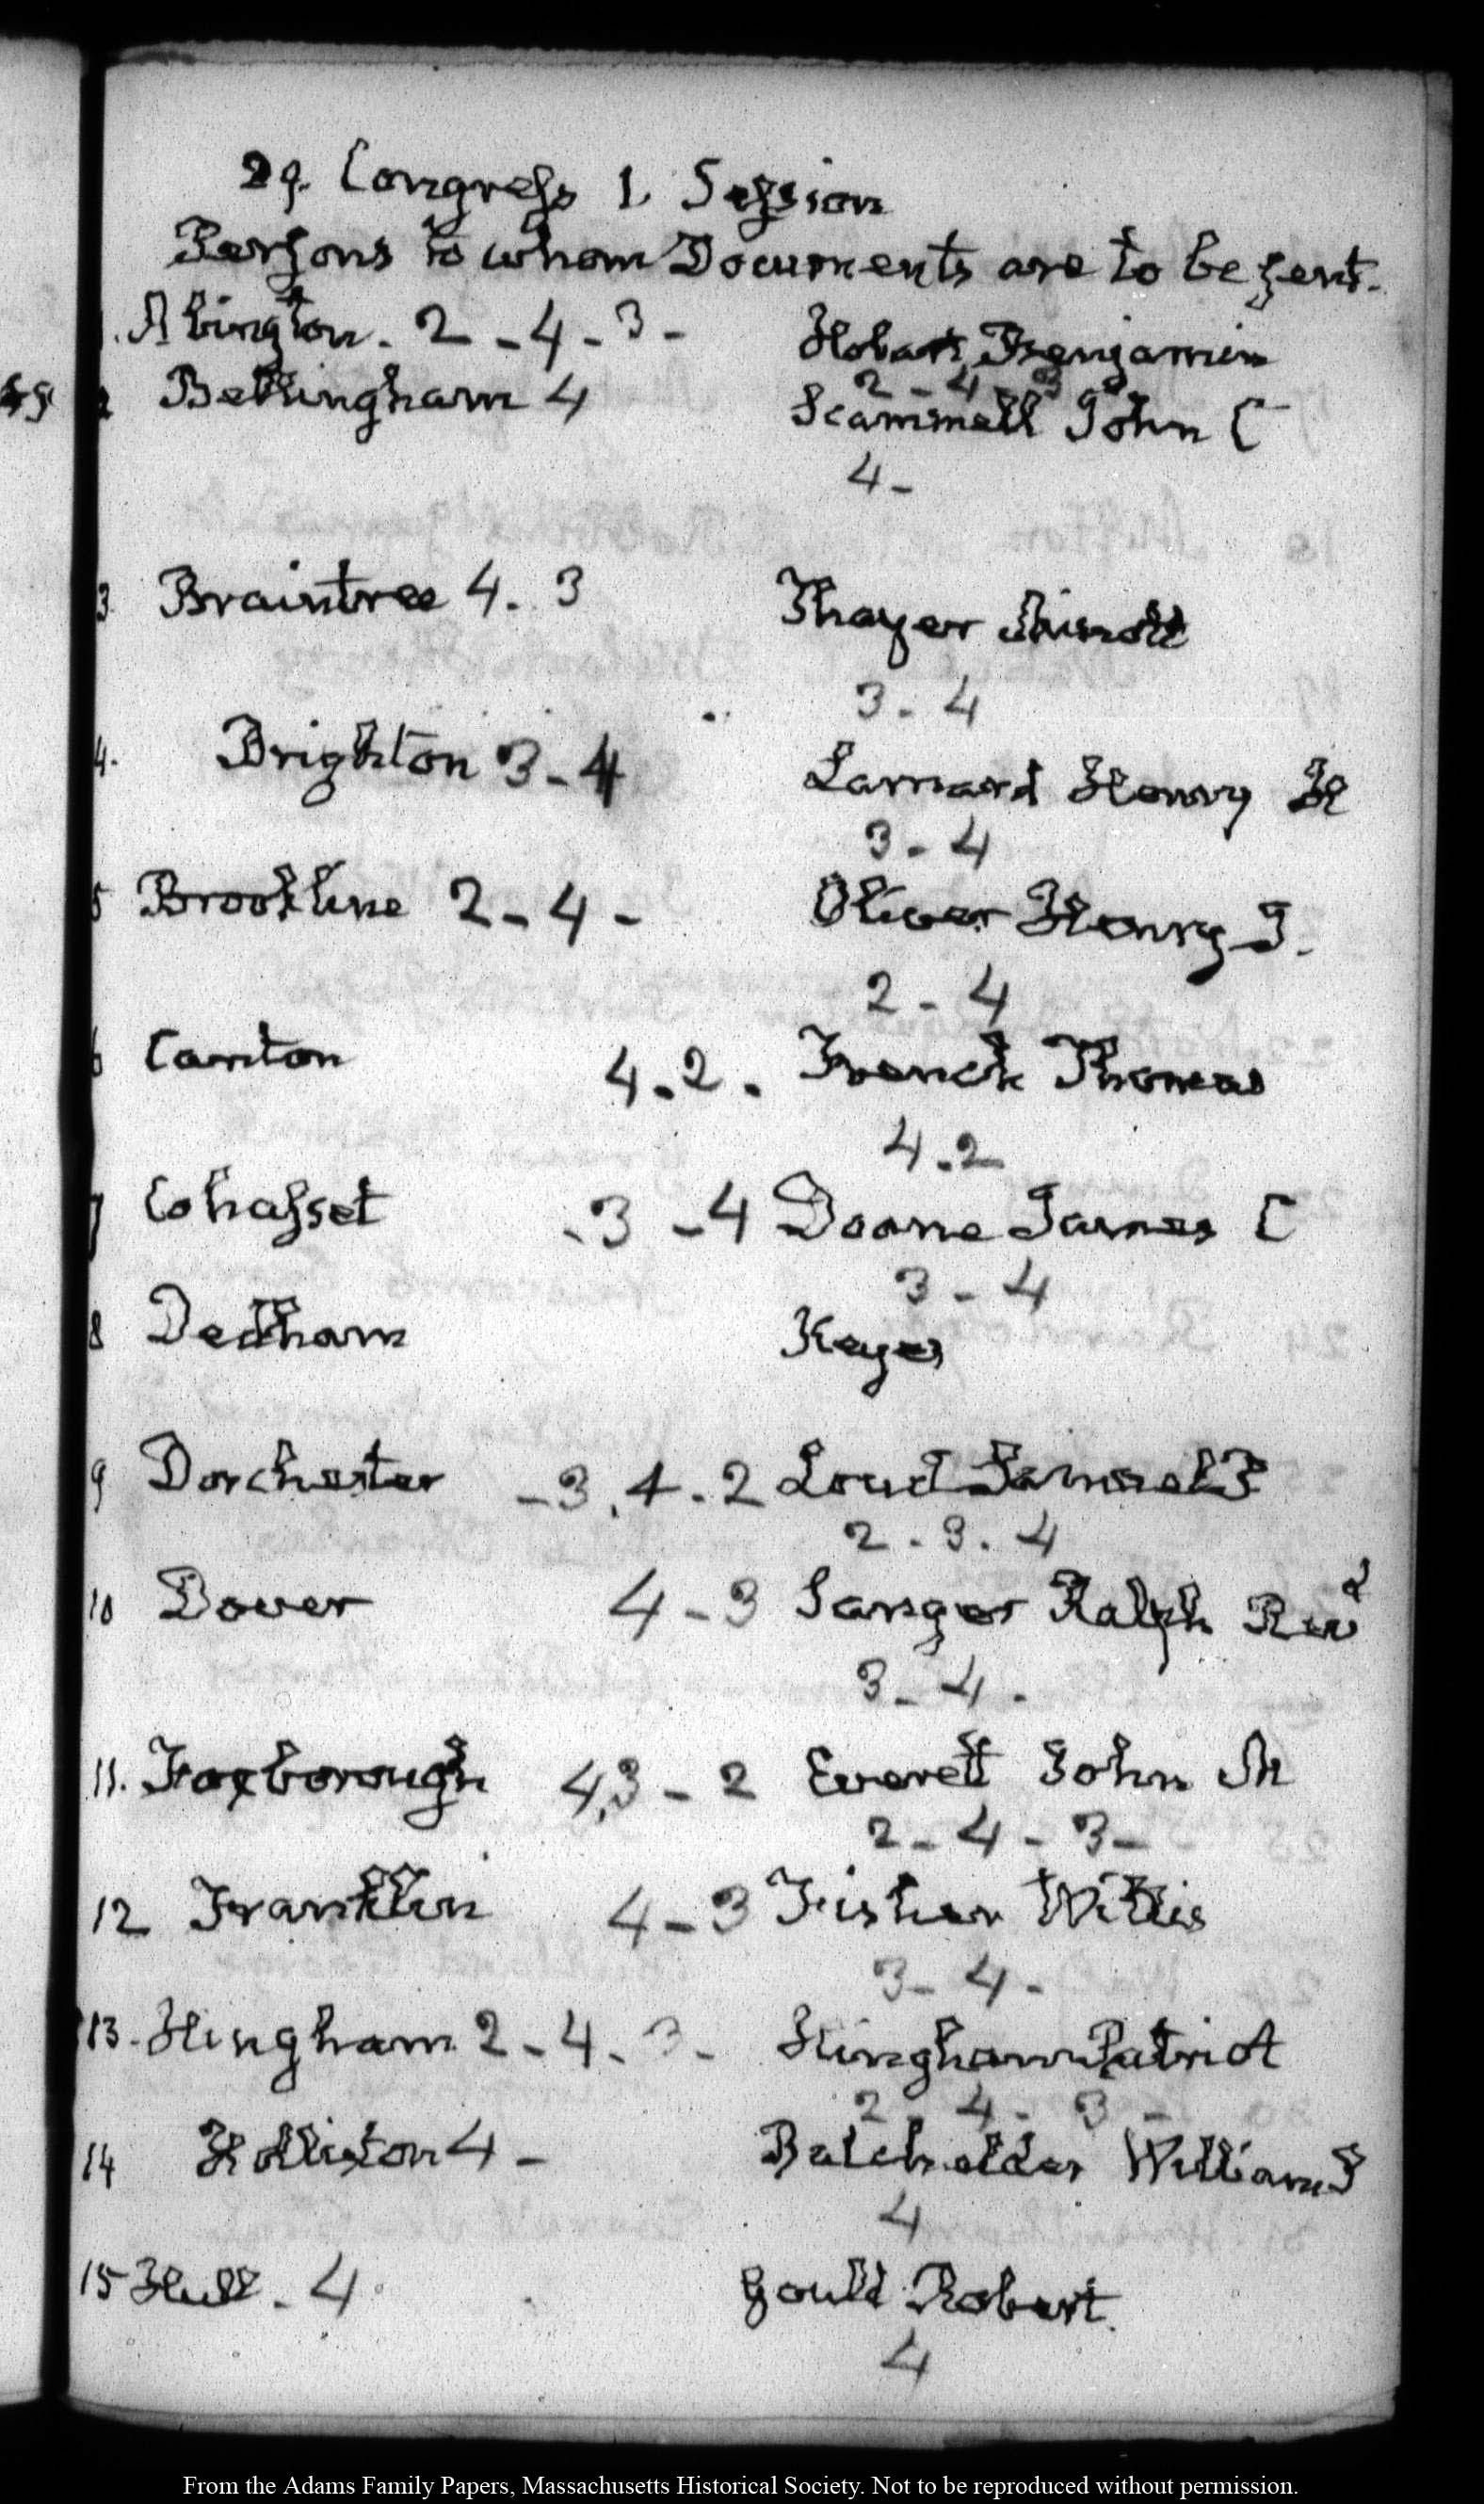 29. Congress 1. Session
Persons to whom Documents are to be sent.
1. Abington. 2 - 4 - 3 - Hobart Benjamin
2 - 4 - 3
2 Bellingham 4 Scammell John C
4 -
3 Braintree 4. 3 Thayer Minott
3. 4
4. Brighton 3 - 4 Larnard Henry H
3 - 4
5 Brookline 2 - 4 - Oliver Henry J.
2 - 4
6 Canton 4. 2. French Thomas
4. 2
7 Cohasset - 3 - 4 Doane James C
3 - 4
8 Dedham Keyes
9 Dorchester - 3. 4. 2 Loud Samuel P
2. 3. 4
10 Dover 4 - 3 Sanger Ralph Revd
3 - 4.
11. Foxborough 4, 3 - 2 Everett John M
2 - 4 - 3 -
12 Franklin 4 - 3 Fisher Willis
3 - 4 -
13. Hingham 2 - 4. 3 - Hingham Patriot
2 4. 3 -
14 Holliston 4 - Batchelder William S
4
15 Hull. 4. Gould Robert.
4
From the Adams Family Papers, Massachusetts Historical Society. Not to be reproduced without permission.